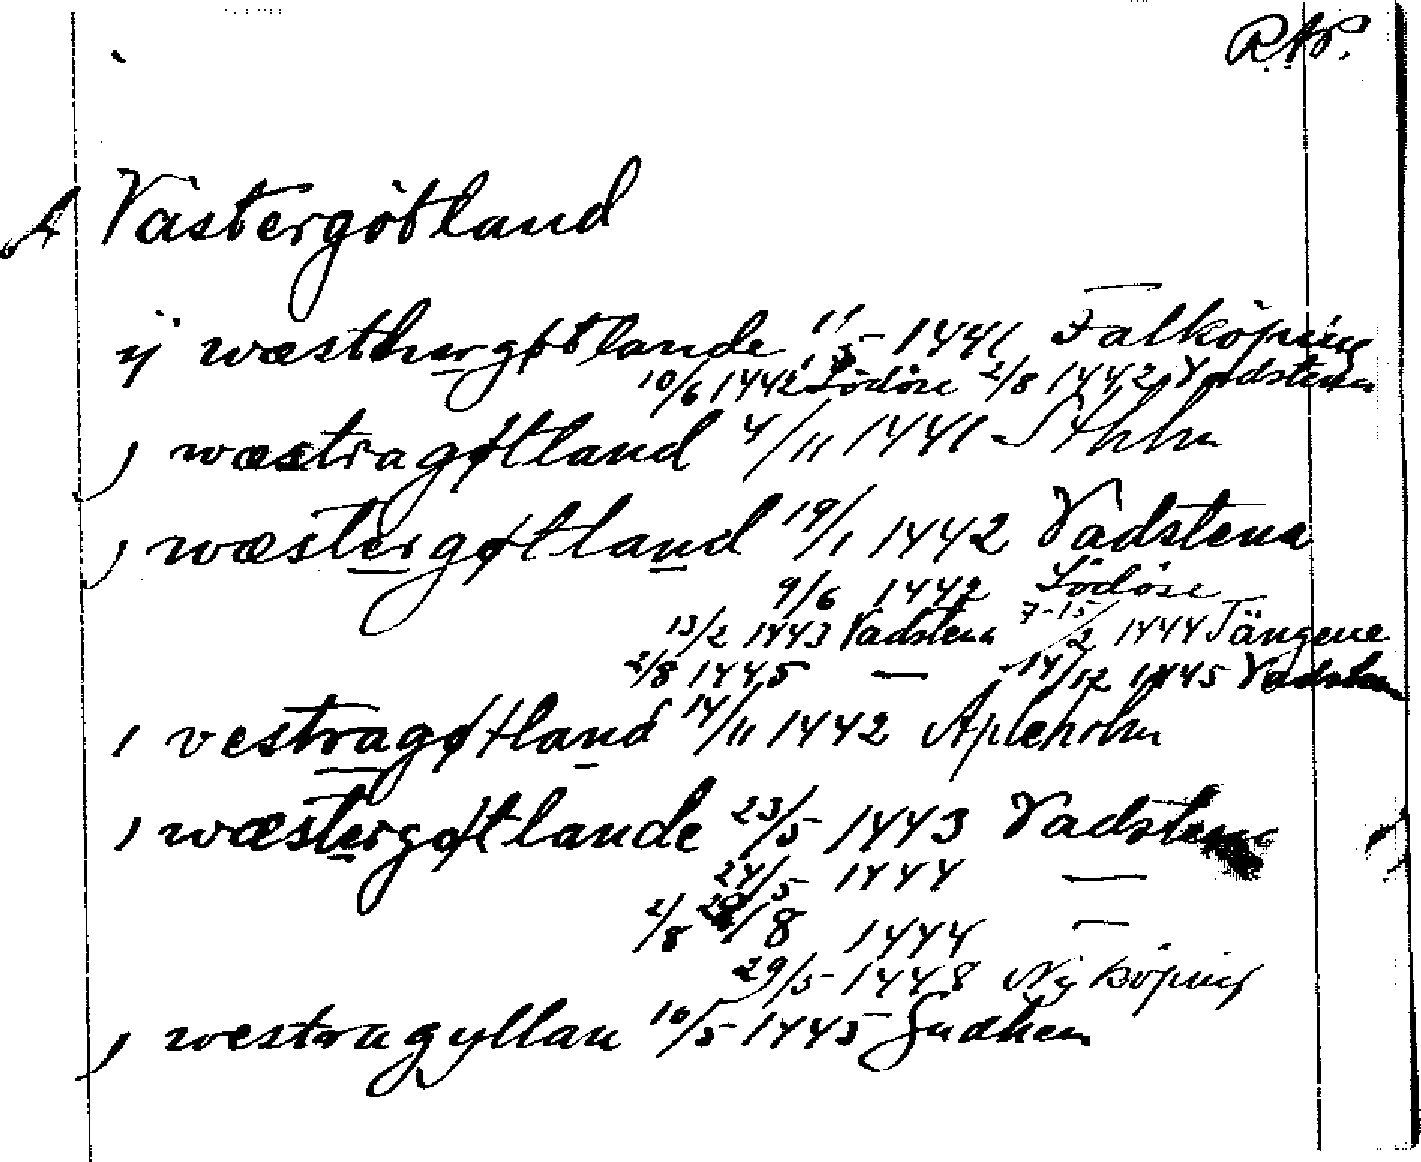 R.A.P.
A Västergötland
ij wæsthergøtlande 11/5 1441 Falköping
10/6 1442 Lödöse 2/8 1442 Vadstena
j wæstragøtland 4/11 1441 Sthlm
j wæstergøtland 19/1 1442 Vadstena
9/6 1442 Lödöse
13/2 1443 Vadstena 7-15/2 1444 Tängene
2/8 1445 — 14/12 1445 Vadstena
i vestragøtland 14/11 1442 Apleholm
i wæstergøtlande 23/5 1443 Vadstena
24/5 1444 —
2/8 1444 —
29/5 1448 Nyköping
j westragyllan 10/5 1445 Gudhem